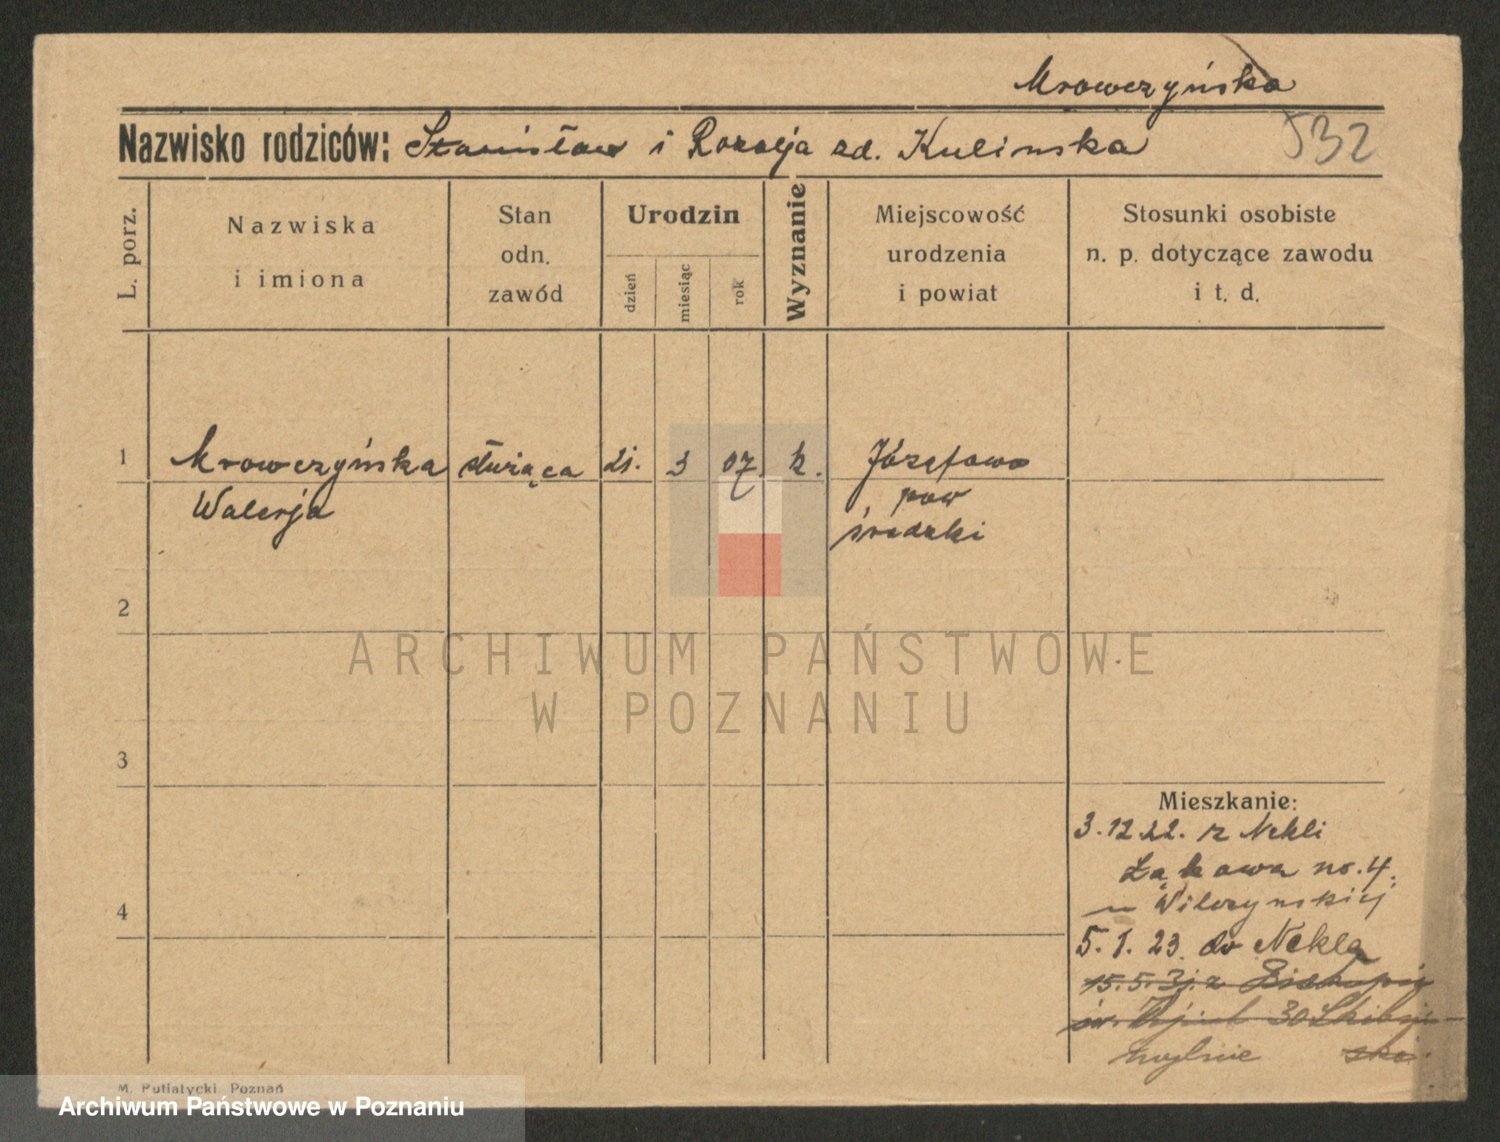 Mrowczyńska
Nazwisko rodziców: Stanisław i Rozalja zd. Kulinska 532
L. porz.
Nazwiska
i imiona
Stan
odn.
zawód
Urodzin
dzień
miesiąc
rok
Wyznanie
Miejscowość
urodzenia
i powiat
Stosunki osobiste
n. p. dotyczące zawodu
i t. d.
1 Mrowczyńska służąca 21. 3 07. k. Józefowo
Walerja pow
średzki
2
3
4
ARCHIWUM PAŃSTWOWE
W POZNANIU
Mieszkanie:
3.12.22. z Nekli
Łąkowa no. 4.
u Wilczynskiej
5. 1. 23. do Nekla
15.5.31. z
św. 30
mylnie
M. Putiatycki, Poznań
Archiwum Państwowe w Poznaniu